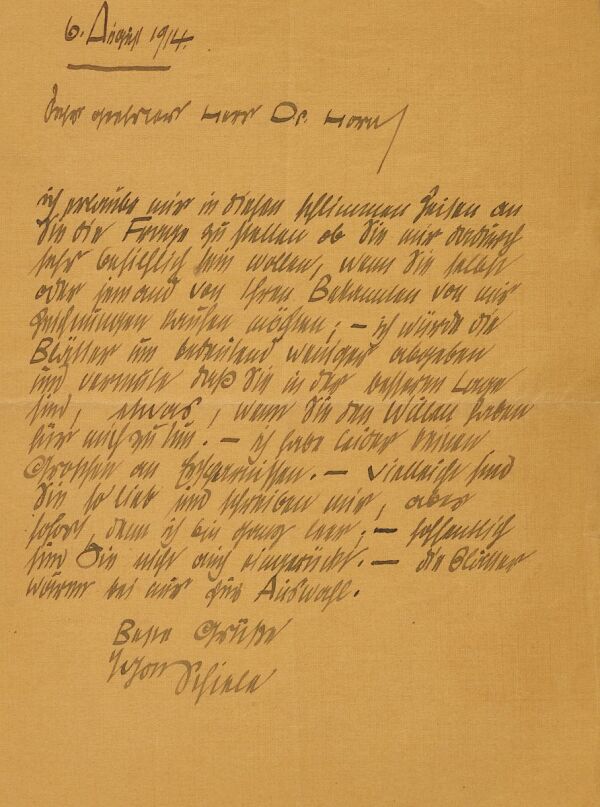 6. August 1914.
Sehr geehrter Herr Dr. Horn
ich erlaube mir in diesen schlimmen Zeiten an
Sie die Frage zu stellen ob Sie mir dadurch
sehr behilflich sein wollen, wenn Sie selbst
oder jemand von Ihren Bekannten von mir
Zeichnungen kaufen möchten; – ich würde die
Blätter um bedeutend weniger abgeben
und vermute daß Sie in der besseren Lage
sind, etwas, wenn Sie den Willen haben
für mich zu tun. – ich habe leider keinen
Groschen an – vielleicht sind
Sie so lieb und schreiben mir, aber
sofort, denn ich bin ganz leer; – hoffentlich
sind Sie nicht auch eingerückt. – die Blätter
wären bei mir zur Auswahl.
Beste Grüße
Egon Schiele